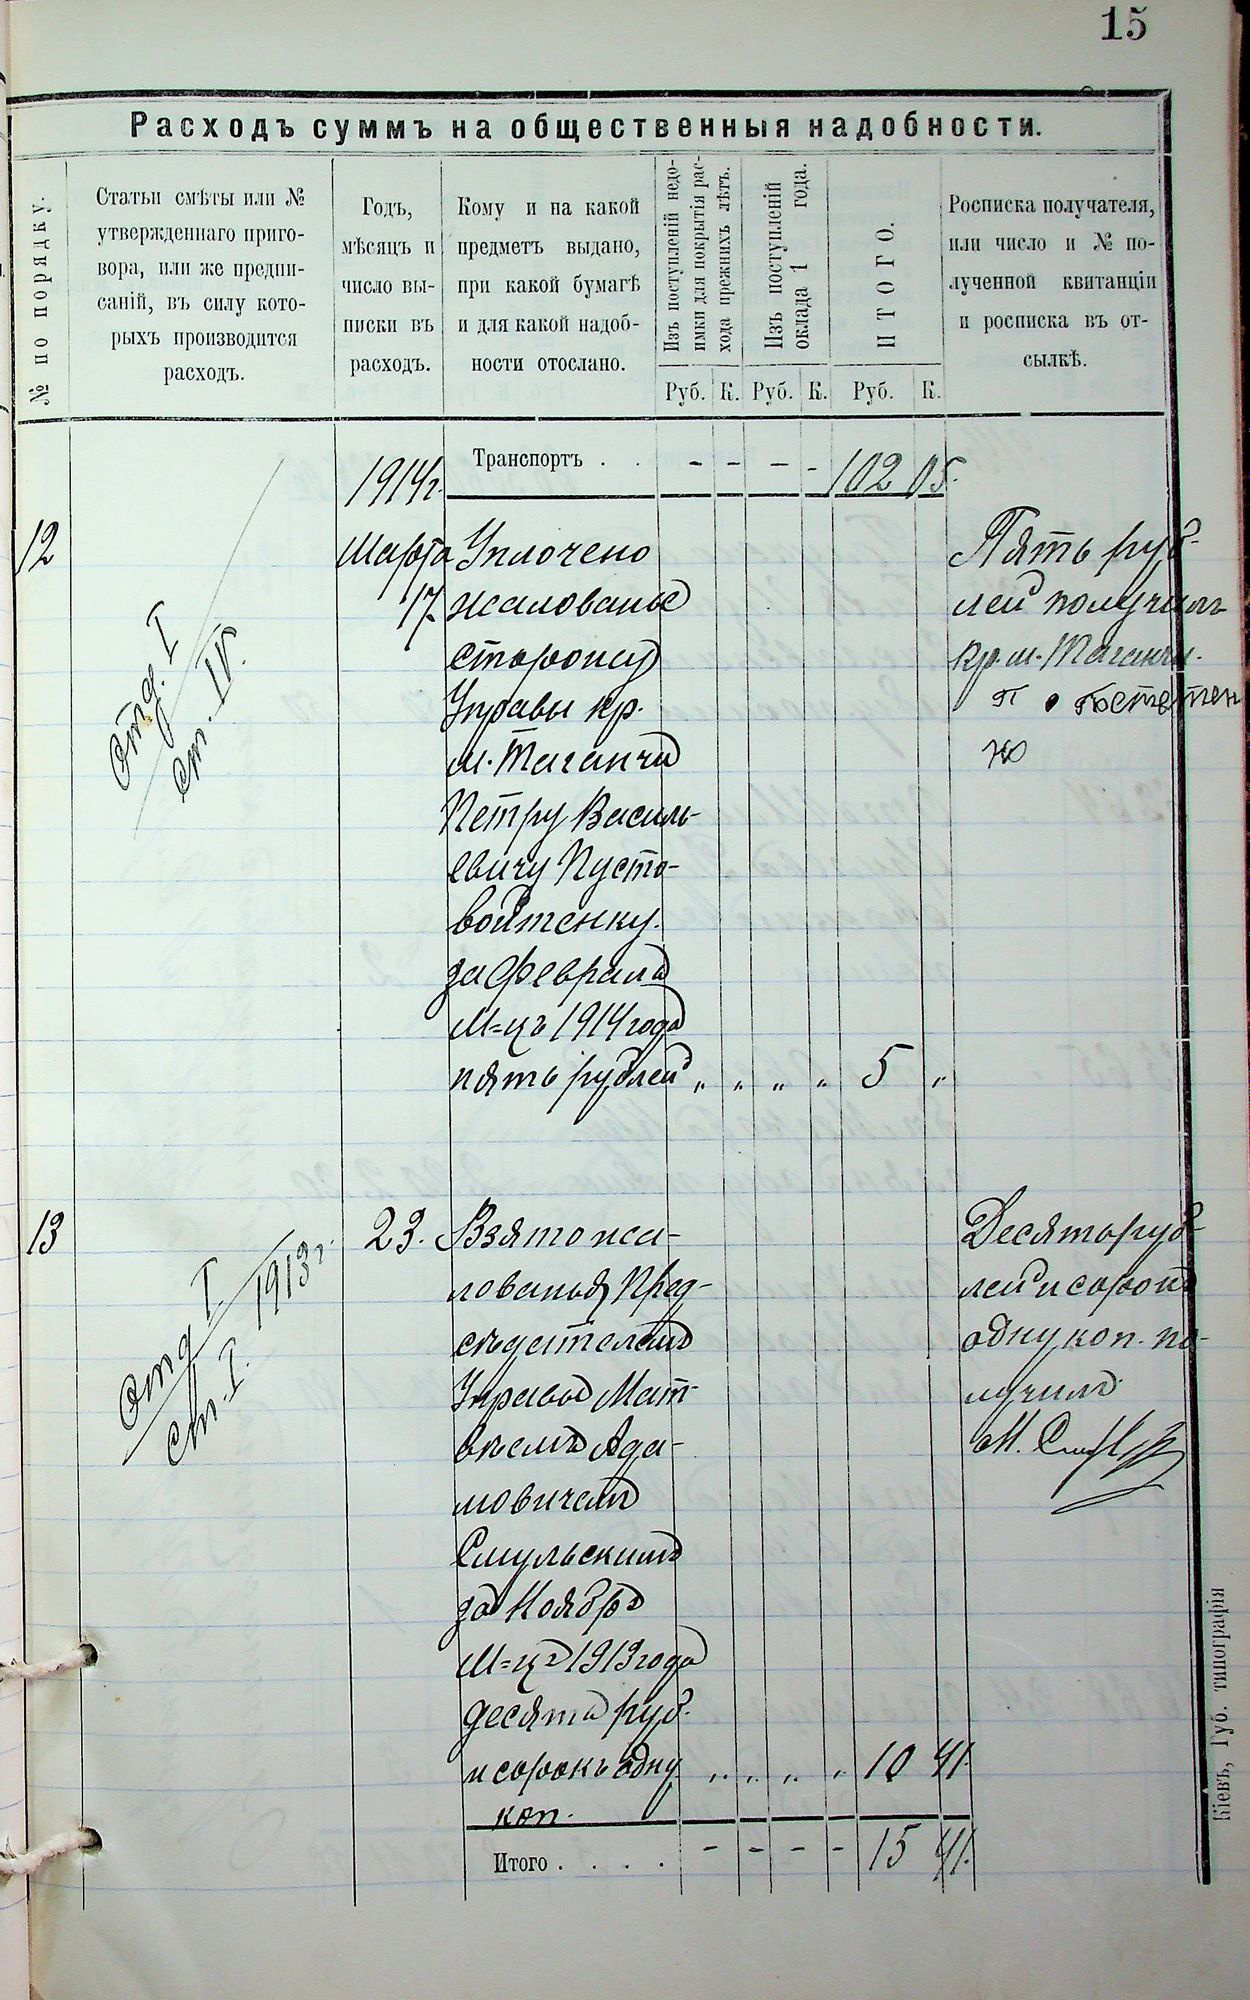 15
Расходъ суммъ на общественныя надобности.
№ по порядку.
Статьи смѣты или №
утвержденнаго приго-
вора, или же предпи-
саній, въ силу кото-
рыхъ производится
расходъ.
Годъ,
мѣсяцъ и
число вы-
писки въ
расходъ.
Кому и на какой
предметъ выдано,
при какой бумагѣ
и для какой надоб-
ности отослано.
Изъ поступленій недо-
имки для покрытія рас-
хода прежнихъ лѣтъ.
Изъ поступленій
оклада 1 года.
ИТОГО.
Росписка получателя,
или число и № по-
лученной квитанціи
и росписка въ от-
сылкѣ.
Руб. К. Руб. К. Руб. К.
1914 г.
Транспортъ . . - - - - 102 05.
12
Отд. I
ст. IV.
Марта
17.
Уплочено
жалованье
сторожу
Управы кр.
м. Таганчи
Петру Василь-
евичу Пусто-
войтенку.
за февраль
м=цъ 1914 года
пять рублей „ „ „ „ 5 „
Пять руб-
лей получилъ
кр. м. Таганчи.
13
Отд I
ст. I. 1913 г.
23.
Взято жа-
лованья Пред-
сѣдателемъ
Управы Мат-
вѣемъ Ада-
мовичемъ
Смульскимъ
за Ноябрь
м=цъ 1913 года
десять руб.
и сорокъ одну „ „ „ „ 10 41.
коп.
Десять руб-
лей и сорокъ
одну коп. по-
лучилъ
М.
Итого . . . . - - - - 15 41.
Кіевъ, Губ. типографія